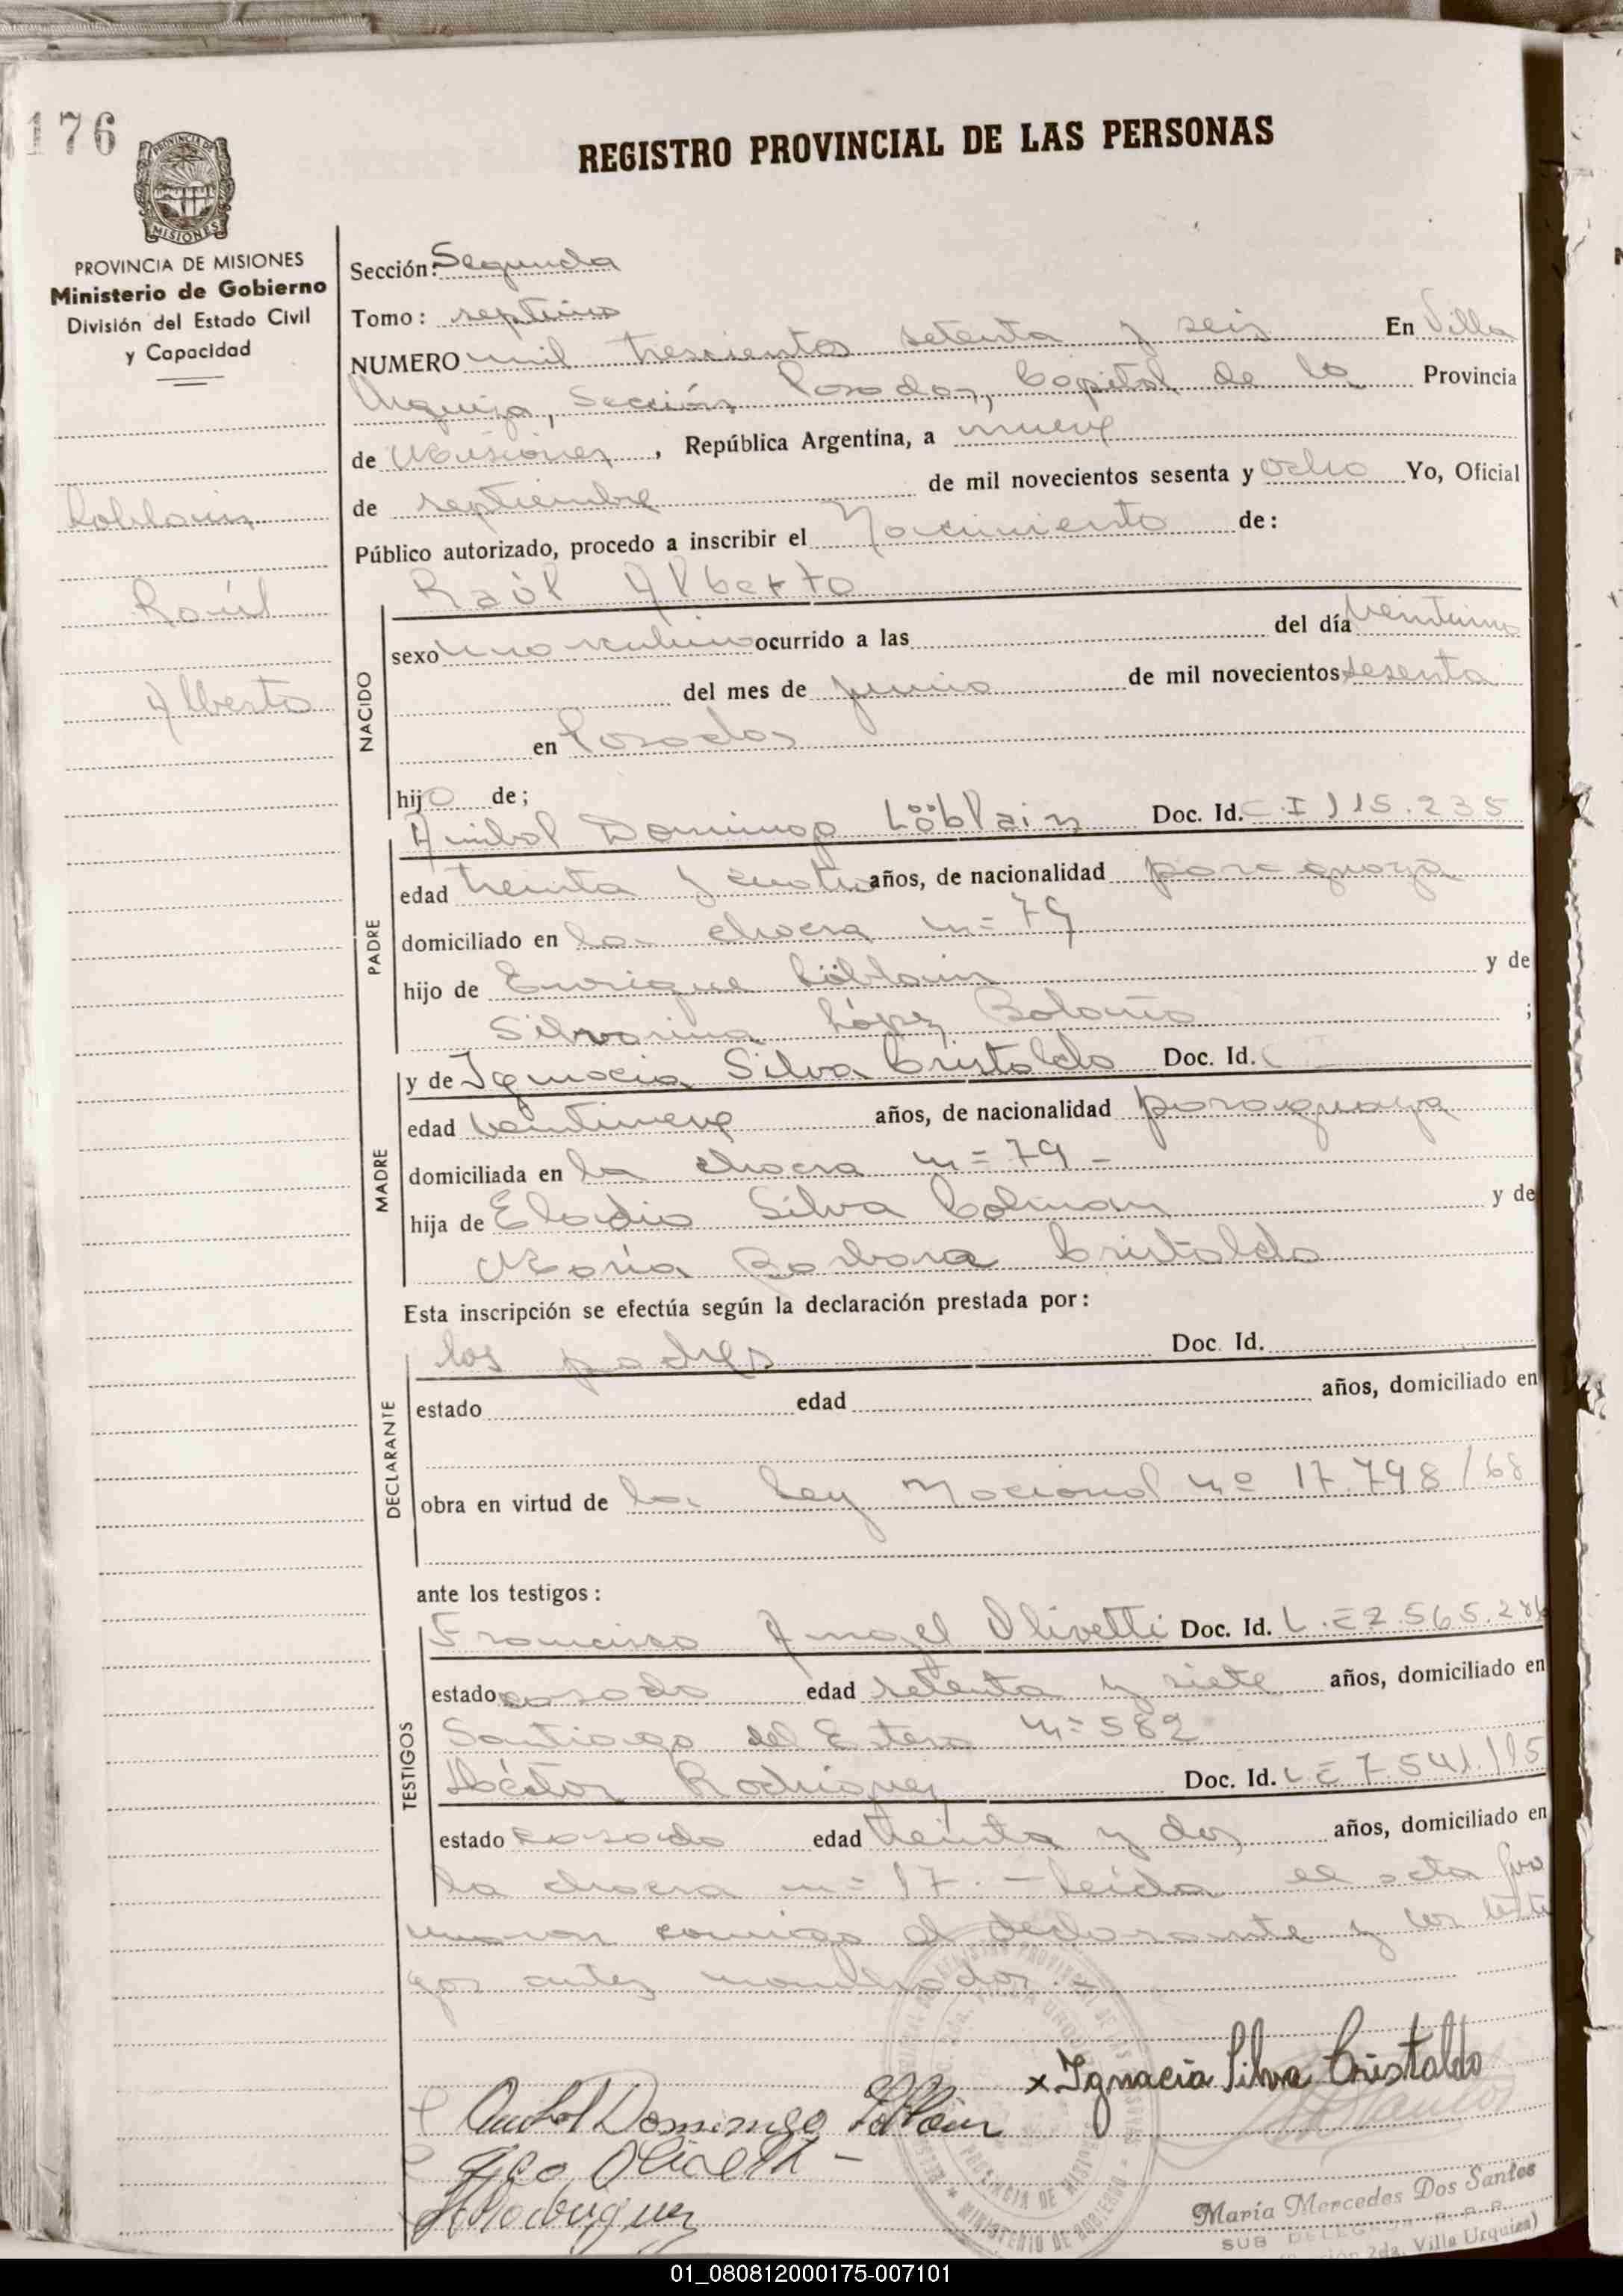 176
REGISTRO PROVINCIAL DE LAS PERSONAS
PROVINCIA DE MISIONES
Ministerio de Gobierno
División del Estado Civil
y Capacidad
Loblain
Raúl
Alberto
Sección: Segunda
Tomo: septimo
NUMERO mil trescientos setenta y seis En Villa
Urquiza, Sección Posadas, Capital de la Provincia
de Misiones, República Argentina, a nueve
de septiembre de mil novecientos sesenta y ocho Yo, Oficial
Público autorizado, procedo a inscribir el Nacimiento de:
Raúl Alberto
NACIDO
sexo masculino ocurrido a las del día veintiuno
del mes de junio de mil novecientos sesenta
en Posadas
hijo de;
PADRE
Anibal Domingo Löblain Doc. Id. C.I 115.235
edad treinta y cuatro años, de nacionalidad paraguaya
domiciliado en la chacra n= 79
hijo de Enrique Löblain y de
Silvarina López Bolaño ;
MADRE
y de Ignacia Silva Cristaldo Doc. Id.
edad veintinueve años, de nacionalidad paraguaya
domiciliada en la chacra n= 79 -
hija de Eladio Silva Colman y de
María Barbara Cristaldo
Esta inscripción se efectúa según la declaración prestada por:
DECLARANTE
los padres Doc. Id.
estado edad años, domiciliado en
obra en virtud de la Ley Nacional nº 17.798/68
ante los testigos:
TESTIGOS
Francisco Angel Olivetti Doc. Id. L.E 2.565.286
estado casado edad setenta y siete años, domiciliado en
Santiago del Estero n= 582
Héctor Rodriguez Doc. Id. L E 7.541.115
estado casado edad treinta y dos años, domiciliado en
la chacra n= 17. - Leida el acta fir
maron conmigo el declarante y los testi
gos antes nombrados. -
x Ignacia Silva Cristaldo
Anibal Domingo Löblain
Fco Olivetti -
HRodriguez
María Mercedes Dos Santos
SUB DELEGADA R.P.P.
2da. Villa Urquiza)
01_080812000175-007101